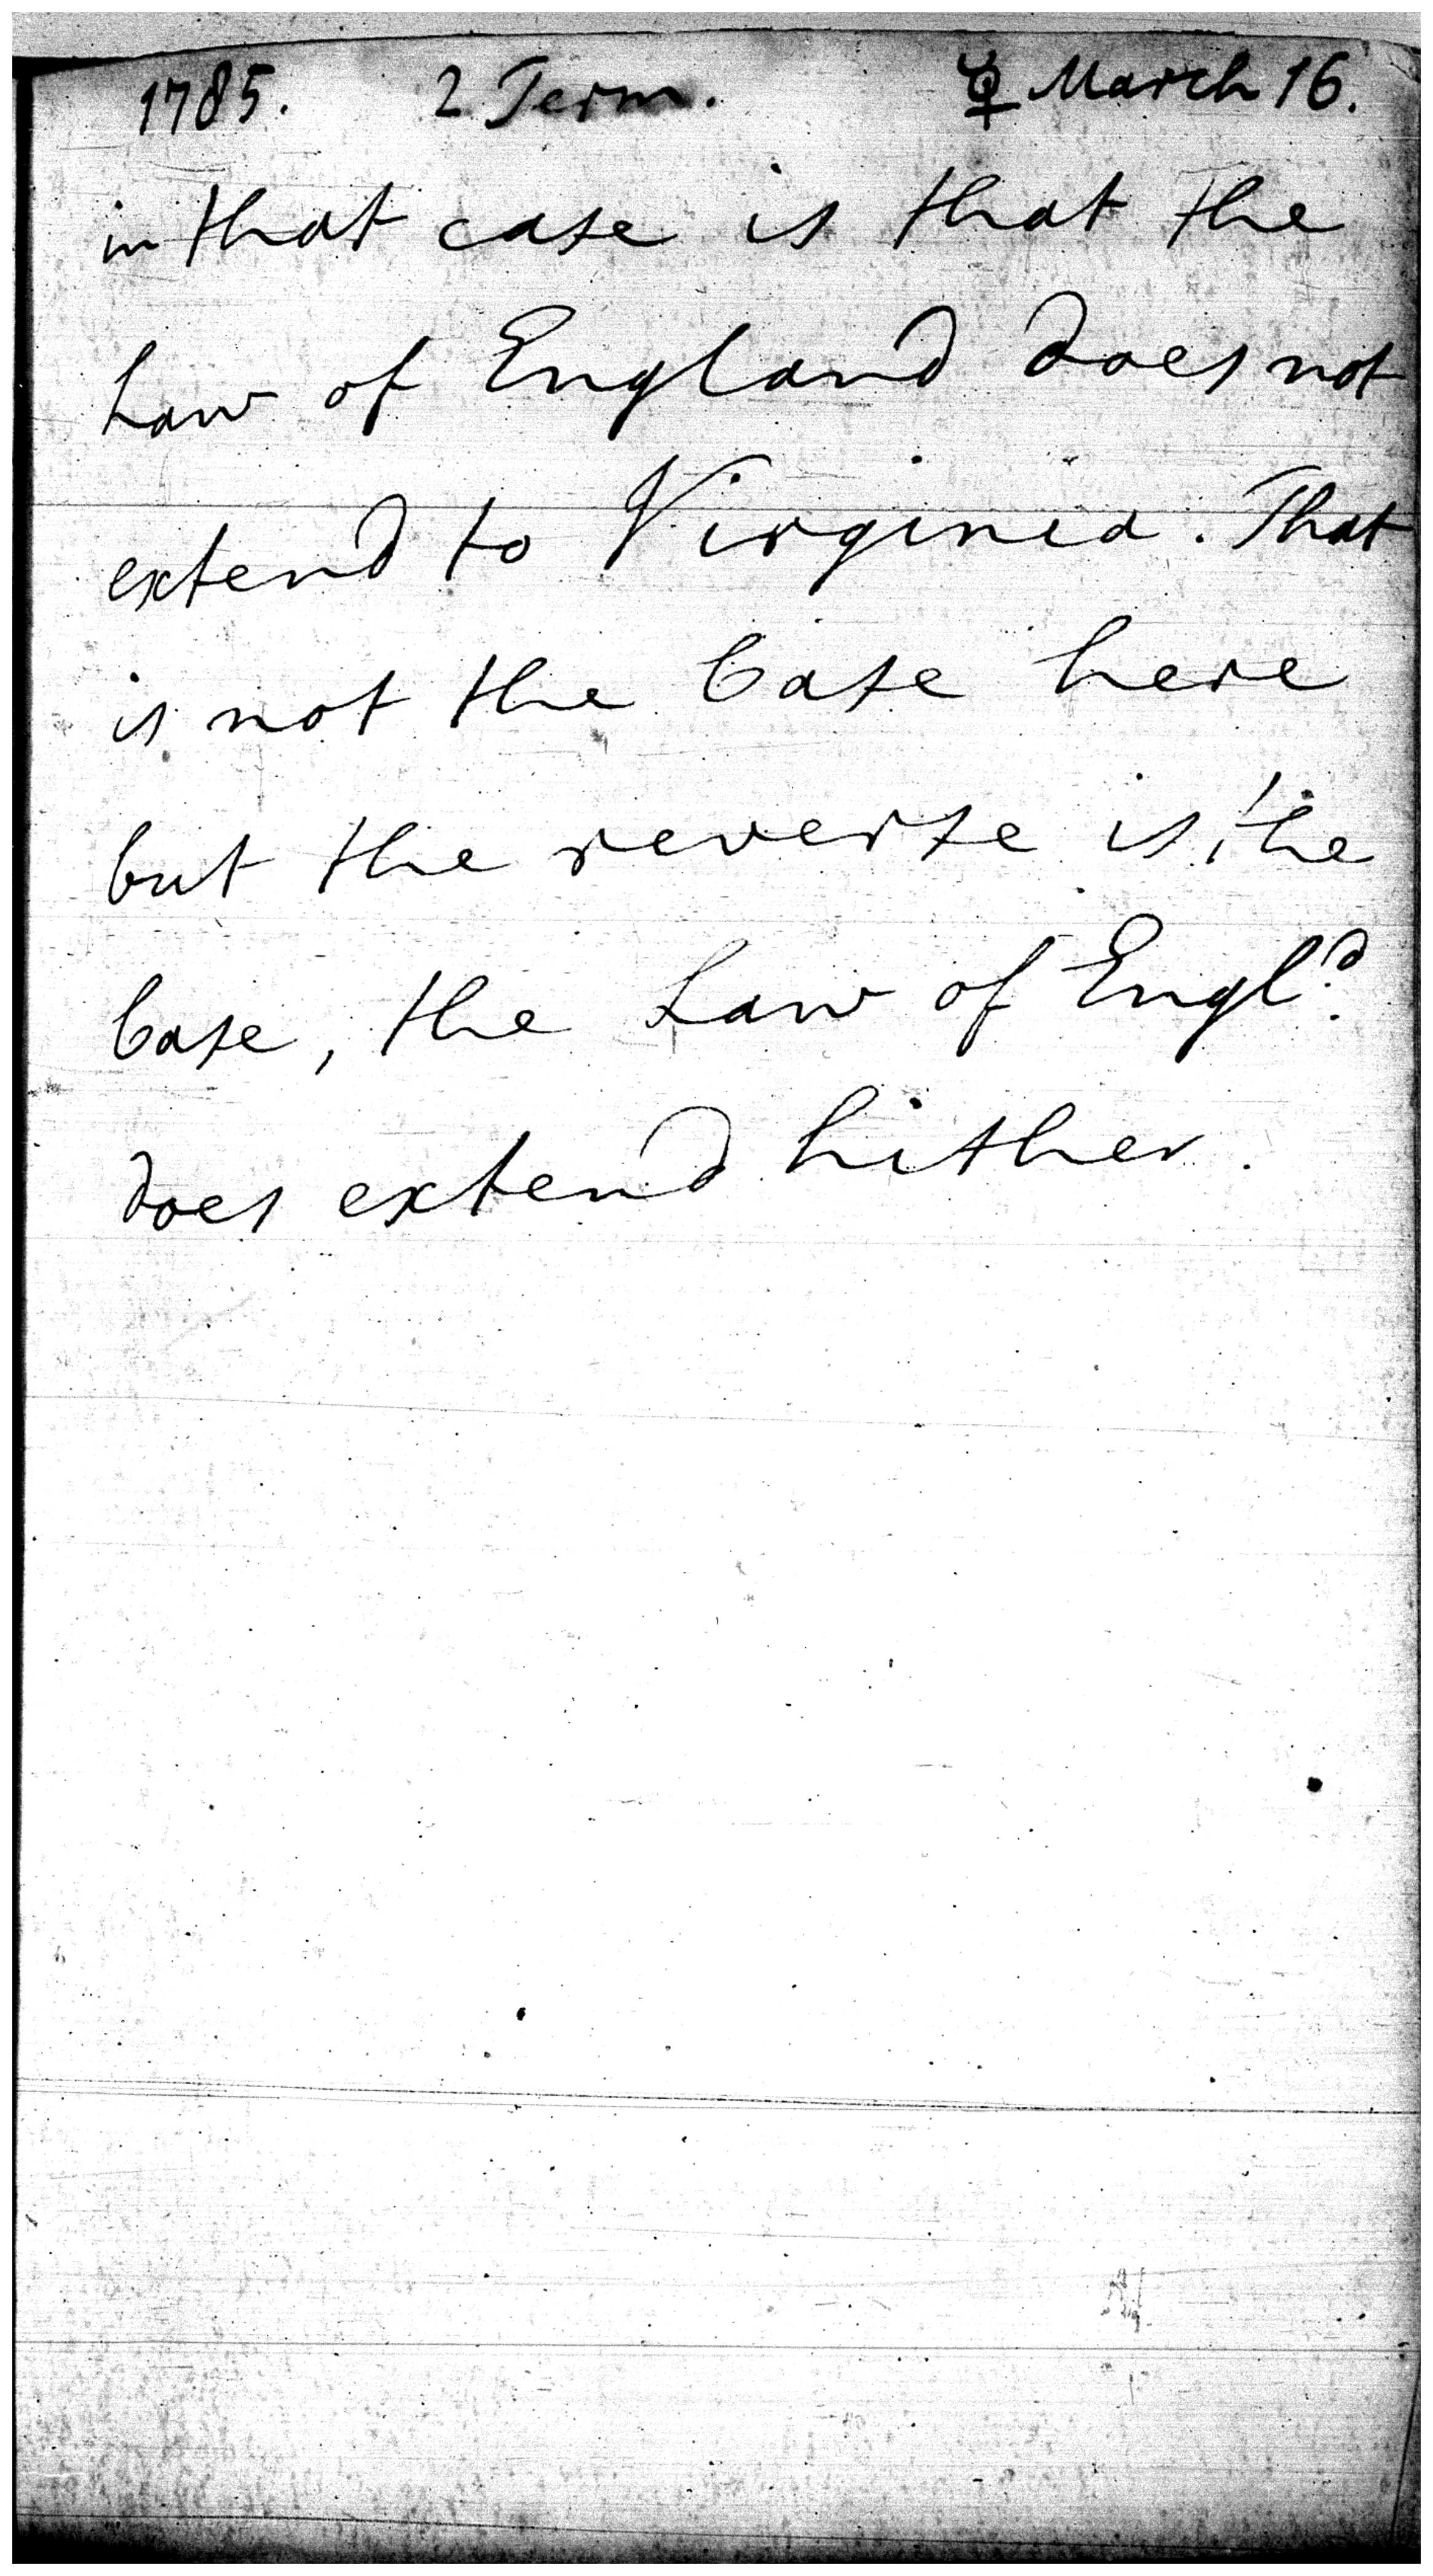 1785. 2 Term. ☿ March 16.
in that case is that the
Law of England does not
extend to Virginia. That
is not the Case here
but the reverse is the
Case, the Law of Engl.d
does extend hither.